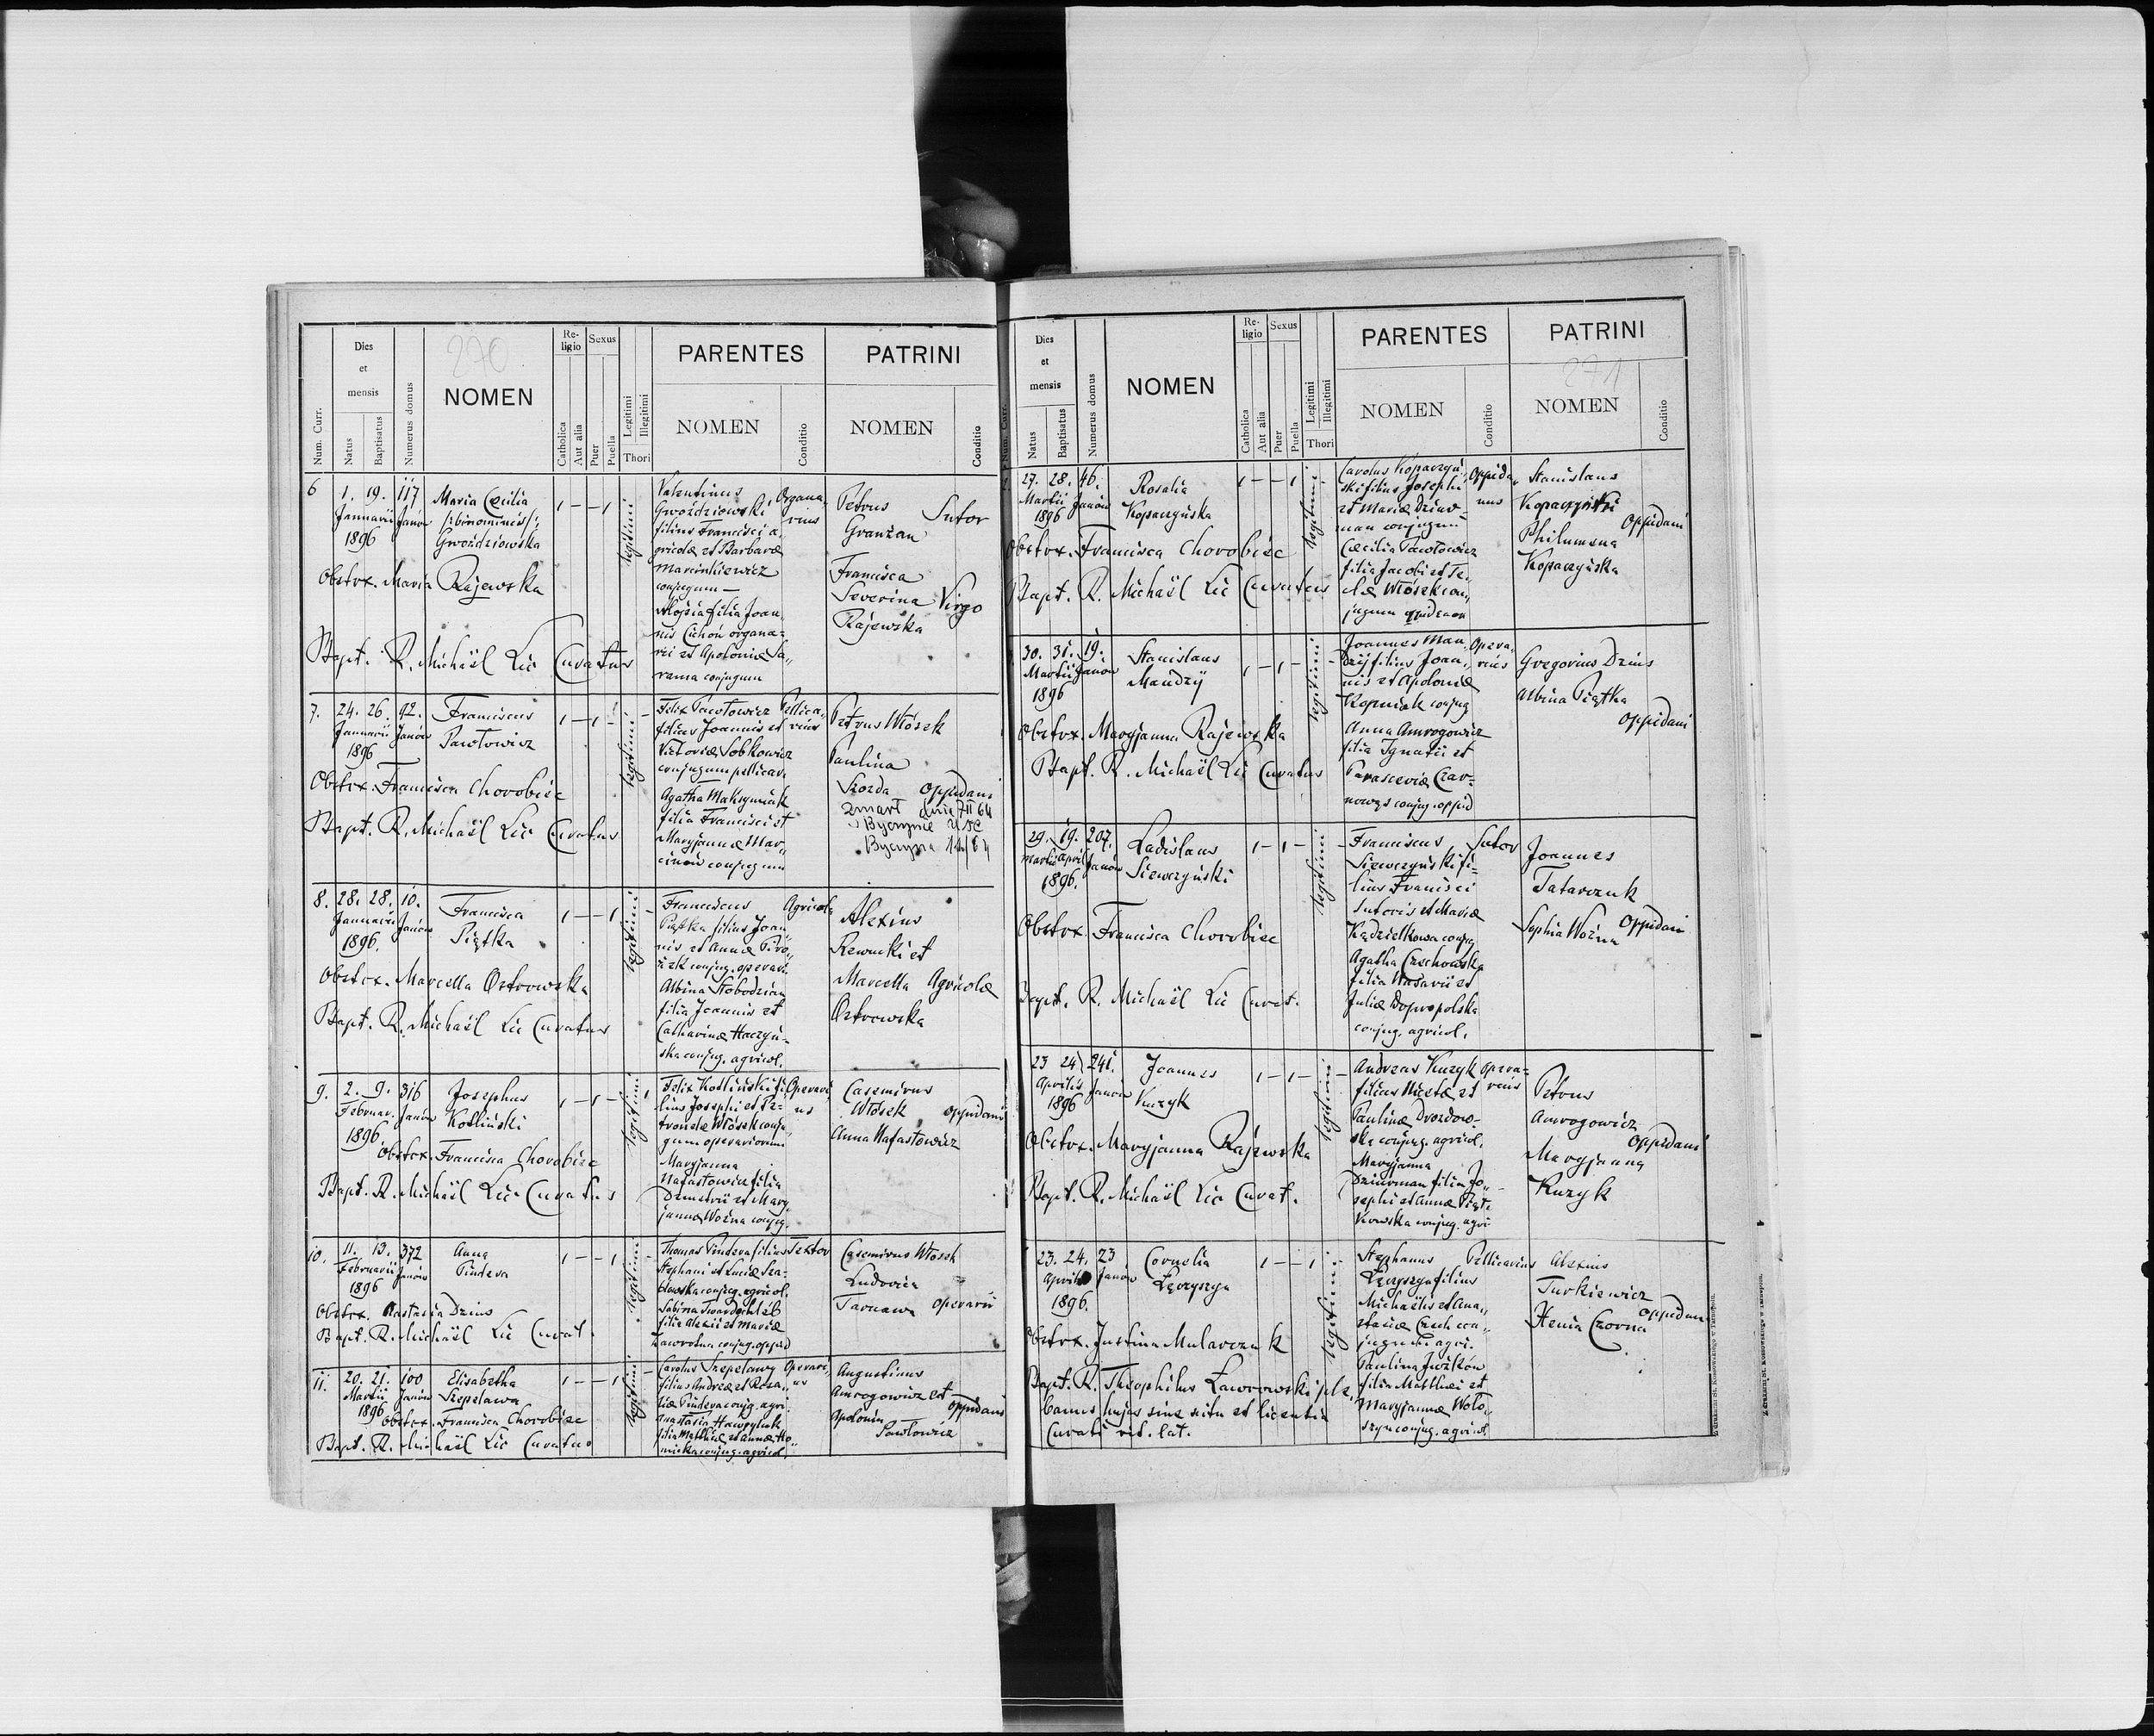 270
Num. Curr.
Dies et mensis
Natus
Baptisatus
Numerus domus
NOMEN
Religio
Catholica
Aut alia
Sexus
Puer
Puella
Legitimi
Illegitimi
Thori
PARENTES
NOMEN
Conditio
PATRINI
NOMEN
Conditio
6
1. 19. 117
Januarii Janów
1896
Maria Cæcilia
(binominis)
Gwoździowska
Obstrx. Maria Rajewska
Bapt. R. Michaël Lic Curatus
legitimi
Valentinus
Gwoździowski
filius Francisci a,,
gricolæ et Barbaræ
Marcinkiewicz
conjugum —
Aloysia filia Joan,,
nis Cichoń organa=
rii et Apoloniæ Sa,,
rama conjugum
Organa,,
rius
Petrus
Granżan
Sutor
Francisca
Severina
Rajewska
Virgo
7. 24. 26. 92.
Januarii Janów
1896
Franciscus
Pawłowicz
Obstrx. Francisca Chorobiec
Bapt. R. Michaël Lic Curatus
legitimi
Felix Pawłowicz
filius Joannis et
Victoriæ Sobkowicz
conjugum pellicar.
Agatha Maksymiak
filia Francisci et
Maryjannæ Mar,,
cinów conjugum
Pellica,,
rius
Petrus Włósek
Paulina
Szozda
oppidani
zmarł dnia 7 II 64
Byczynie USC
Byczyna 14/64
8. 28. 28. 10.
Januarii Janów
1896.
Francisca
Piątka
Obstrx. Marcella Ostrowska
Bapt. R. Michaël Lic Curatus
legitimi
Franciscus
Piątka filius Joan,,
nis et Annæ Piro,,
żek conjug. operari.
Albina Słobodzian
filia Joannis et
Catharinæ Haczyń-
ska conjug. agricol.
Agricola
Alexius
Rewucki et
Marcella
Ostrowska
Agricolæ
9. 2. 9. 316
Februar. Janów
1896
Josephus
Kotliński
Obstrx. Francisca Chorobiec
Bapt. R. Michaël Lic Curatus
legitimi
Felix Kotliński fi,,
lius Josephi et Pe=
tronelæ Włósek conju,,
gum operariorum
Maryjanna
Nafastowicz filia
Demetrii et Mary,,
jannæ Woźna conjug.
Operari,,
us
Casemirus
Włósek
oppidani
Anna Nafastowicz
10. 11. 13. 372
Februarii Janów
1896
Anna
Pindera
Obstrx. Anastasia Dzius
Bapt. R. Michaël Lic Curat.
legitimi
Thomas Pindera filius
Stephani et Luciæ Sza-
błowska conjug. agricol.
Sabina Twardochleb
filia Alexii et Mariæ
Zaworotna conjug. oppid
Textor
Casemirus Włosek
Ludovica
Tarnawa
operarii
11. 20. 21. 100
Martii Janów
1896
Elisabetha
Szepelawa
Obstrx. Francisca Chorobiec
Bapt. R. Michaël Lic Curatus
legitimi
Carolus Szepelawy
filius Andreæ et Rosa,,
liæ Pindera conjug. agri.
Anastasia Hawryluk
filia Matthiæ et Annæ Ho,,
nicka conjug. agricol.
Operari,,
us
Augustinus
Amrogowicz et
Apolonia
Pawłowicz
oppidani
271
Num. Curr.
Dies et mensis
Natus
Baptisatus
Numerus domus
NOMEN
Religio
Catholica
Aut alia
Sexus
Puer
Puella
Legitimi
Illegitimi
Thori
PARENTES
NOMEN
Conditio
PATRINI
NOMEN
Conditio
27. 28. 46.
Martii Janów
1896
Rosalia
Kopaczyńska
Obstrx. Francisca Chorobiec
Bapt. R. Michaël Lic Curatus
legitimi
Carolus Kopaczyń,,
ski filius Josephi
et Mariæ Dziur-
man conjugum
Cæcilia Pawłowicz
filia Jacobi et Te,,
clæ Włósek con,,
jugum
Oppida,,
nus
Stanislaus
Kopaczyński
Philumena
Kopaczyńska
Oppidani
30. 31. 19.
Martii Janów
1896
Stanislaus
Mandzij
Obstrx. Maryjanna Rajewska
Bapt. R. Michaël Lic Curatus
legitimi
Joannes Man,,
dzij filius Joan,,
nis et Apoloniæ
Kopniak conjug
Anna Amrogowicz
filia Ignatii et
Parasceviæ Czar-
nowąs conjug. oppid
Opera,,
rius
Gregorius Dzius
Albina Piątka
oppidani
29. 19. 207.
Martii April Janów
1896.
Ladislaus
Siewczyński
Obstrx. Francisca Chorobiec
Bapt. R. Michaël Lic Curat.
legitimi
Franciscus
Siewczyński fi=
lius Francisci
Sutoris et Mariæ
Kądziełkowa conjug
Agatha Czechowska
filia Nasarii et
Juliæ Dopropolska
conjug. agricol.
Sutor
Joannes
Tatarczuk
Sophia Woźna
Oppidani
23 24 241.
Aprilis Janów
1896
Joannes
Kuzyk
Obstrx. Maryjanna Rajewska
Bapt. R. Michaël Lic Curat.
legitimi
Andreas Kuzyk
filius Nicetæ et
Paulinæ Drozdow-
ska conjug. agricol.
Maryjanna
Dziurman filia Jo-
sephi et Annæ Piąt-
kowska conjug. agri-
opera=
rius
Petrus
Amrogowicz
Maryjanna
Kuzyk
Oppidani
23. 24. 23
Aprilis Janów
1896.
Cornelia
Łęczyszyn
Obstrx. Justina Mularczuk
Bapt. R. Theophilus Zaworowski
Curati rit. lat.
legitimi
Stephanus
Łęczyszyn filius
Michaëlis et Ana,,
stasiæ Czech con,,
jugum agri.
Paulina Juzków
filia Matthæi et
Maryjannæ Woło,,
szyn conjug. agricol.
Pellicarius
Alexius
Turkiewicz
Xenia Czorna
oppidani